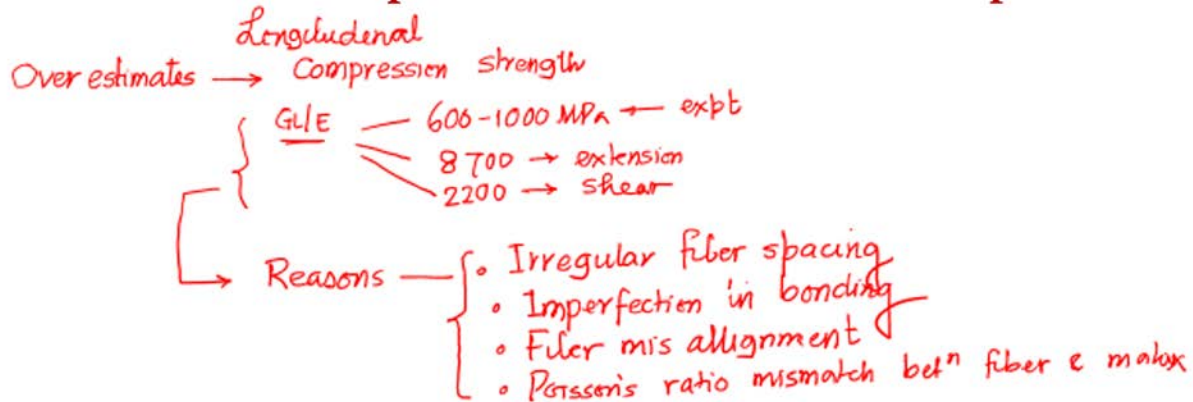 Longitudenal
Over estimates → Compression strength
GL/E — 600-1000 MPa ← expt
8700 → extension
2200 → shear
Reasons — • Irregular fiber spacing
• Imperfection in bonding
• Fiber mis allignment
• Poisson's ratio mismatch betⁿ fiber & matrix